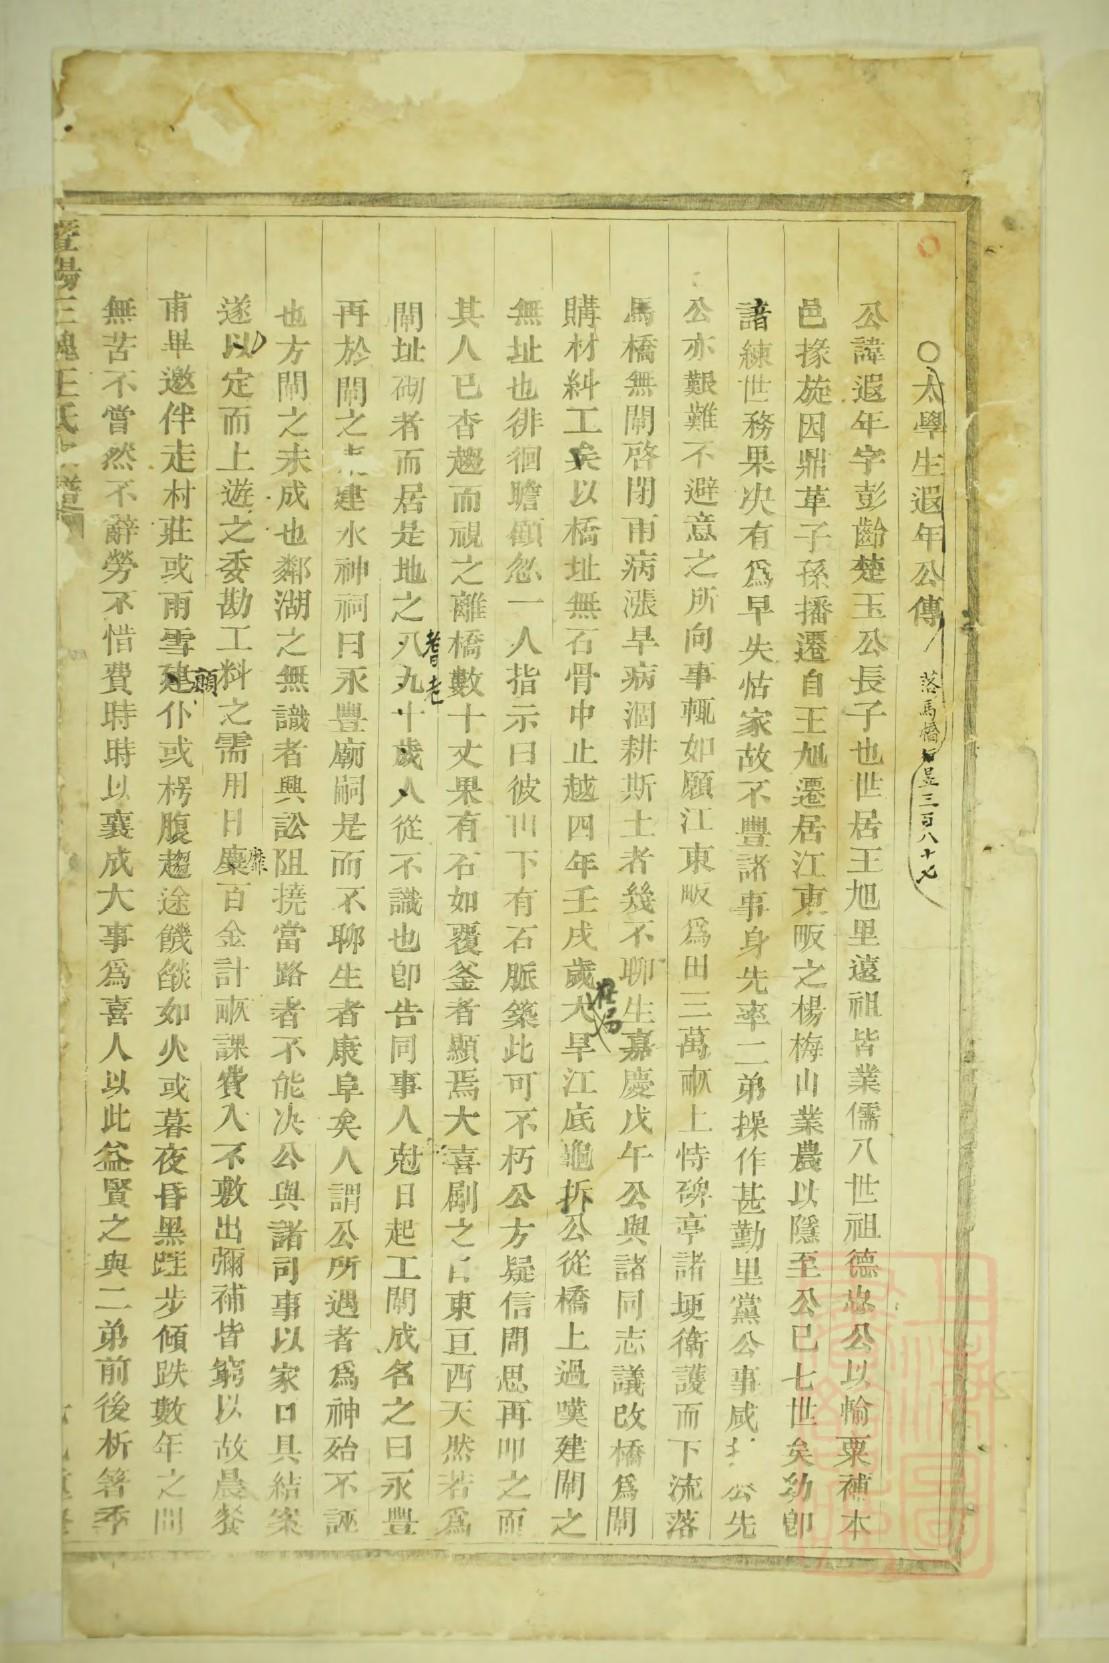 ○太學生遐年公傳
落馬橋 昱三百八十七
公諱遐年字彭齡楚玉公長子也世居王旭里遠祖皆業儒八世祖德忠公以輸粟補本
邑掾旋因鼎革子孫播遷自王旭遷居江東畈之楊梅山業農以隱至公已七世矣幼即
諳練世務果决有爲早失怙家故不豐諸事身先率二弟操作甚勤里黨公事咸 公先
公亦艱難不避意之所向事輒如願江東畈爲田三萬畝上恃碑亭諸埂衛護而下流落
馬橋無閘啓閉雨病漲旱病涸耕斯土者幾不聊生嘉慶戊午公與諸同志議改橋爲閘
購材糾工矣以橋址無石骨中止越四年壬戌歲大旱江底龜拆公從橋上過嘆建閘之
無址也徘徊瞻顧忽一人指示曰彼 下有石脈築此可不朽公方疑信間思再叩之而
其人已杳趨而視之離橋數十丈果有石如覆釜者顯焉大喜刷之 東亘西天然若爲
閘址砌者而居是地之八九十歲人從不識也卽告同事人尅日起工閘成名之曰永豐
耆老
再於閘之 建水神祠曰永豐廟嗣是而不聊生者康阜矣人謂公所遇者爲神殆不誣
也方閘之未成也鄰湖之無識者興訟阻撓當路者不能决公與諸司事以家口具結案
遂以定而上遊之委勘工料之需用日麋百金計畝課費入不敷出彌補皆窮以故晨餐
靡
甫畢邀伴走村莊或雨雪建仆或枵腹趨途饑燄如火或暮夜昏黑跬步傾跌數年之間
顛
無苦不嘗然不辭勞不惜費時時以襄成大事爲喜人以此益賢之與二弟前後析箸季